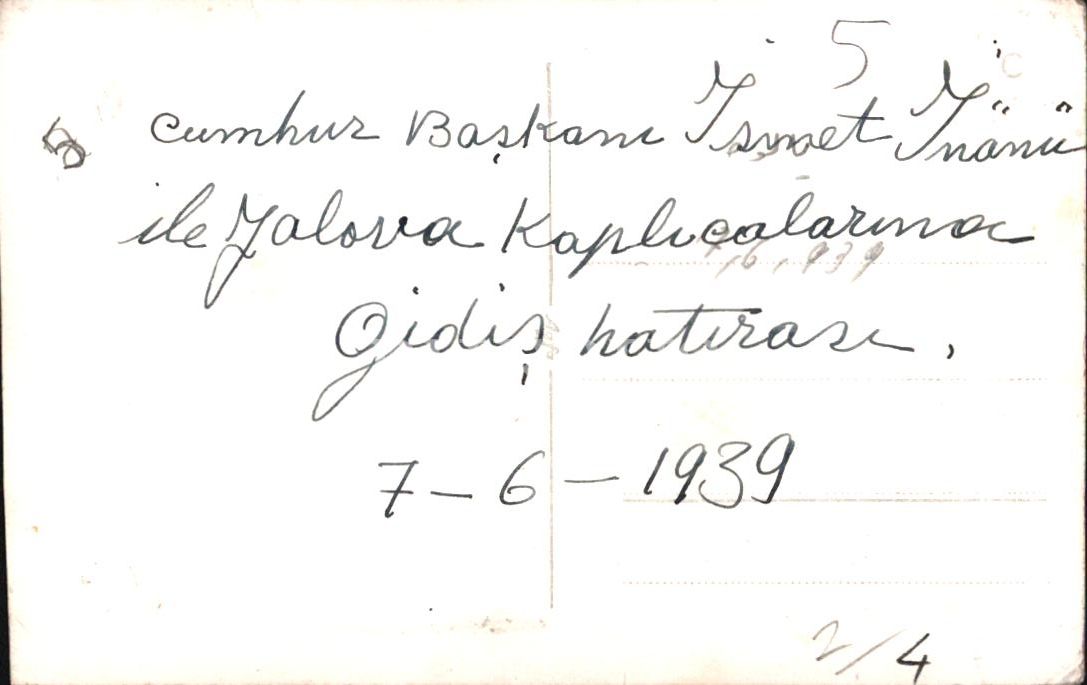 5
cumhur Başkanı İsmet İnönü
ile Yalova Kaplıcalarına
7,6,939
Gidiş hatırası.
7-6-1939
2/4